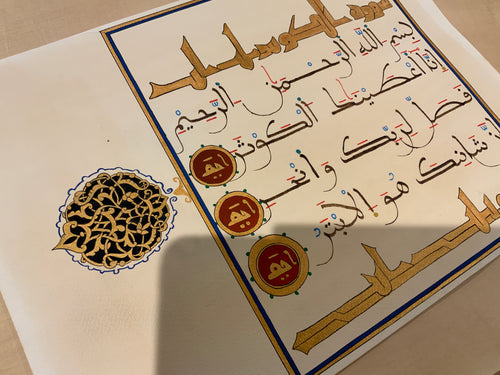 سورة الكوثر
بِسْمِ اللَّهِ الرَّحْمَٰنِ الرَّحِيمِ
إِنَّا أَعْطَيْنَٰكَ الْكَوْثَرَ آية
فَصَلِّ لِرَبِّكَ وَانْحَرْ آية
إِنَّ شَانِئَكَ هُوَ الْأَبْتَرُ آية